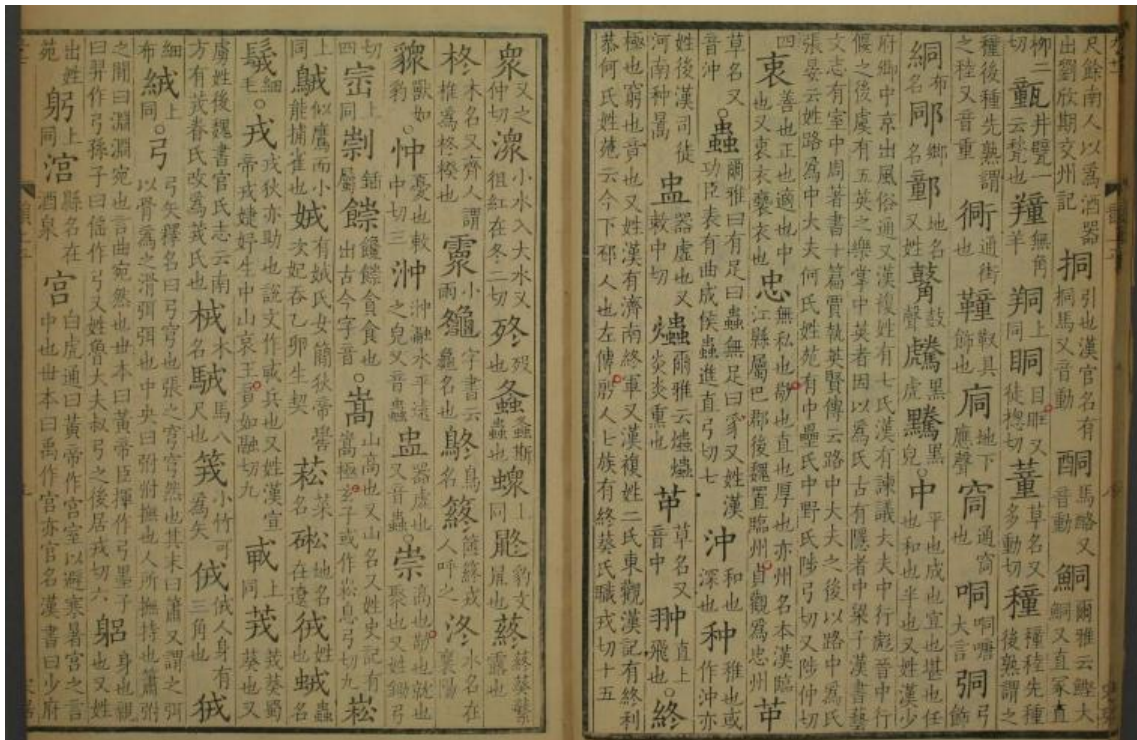 尺餘南人以爲酒器出劉欣期交州記 挏 引也漢官名有挏馬又音動 酮 馬酪又音動 鮦 爾雅云鰹大鮦又直冢直
柳二切 井甓一云甃也 無角羊 上同 眮 目眶又徒揔切 董 草名又多動切 穜 穜稑先種後熟謂之
種後種先熟謂之稑又音重 衕 通街也 鞁具飾也 地下應聲 通窗也 哃 哃嘡大言 弓飾
絧 布名 鄉名 地名又姓 鼓聲 黑虎 黑皃 ○中 平也成也宜也堪也任也和也半也又姓漢少
府卿中京出風俗通又漢複姓有七氏漢有諫議大夫中行彪晉中行
偃之後虞有五英之樂掌中英者因以爲氏古有隱者中梁子漢書藝
文志有室中周著書十篇賈執英賢傳云路中大夫之後以路中爲氏
張晏云姓路爲中大夫何氏姓苑有中壘氏中野氏陟弓切又陟仲切
四 衷 善也正也適也中也又衷衣褻衣也 忠 無私也敬也直也厚也亦州名本漢臨江縣屬巴郡後魏置臨州貞觀爲忠州 𦬕
草名又音沖 ○蟲 爾雅曰有足曰蟲無足曰豸又姓漢功臣表有曲成侯蟲進直弓切七 沖 和也深也 种 稚也或作沖亦
姓後漢司徒河南种暠 盅 器虛也又敕中切 爞 爾雅云爞爞炎炎熏也 𦬕 草名又音中 翀 直上飛也 ○終
極也窮也音也又姓漢有濟南終軍又漢複姓二氏東觀漢記有終利恭何氏姓苑云今下邳人也左傳殷人七族有終葵氏職戎切十五
眾 又之仲切 潀 小水入大水又徂紅在冬二切 歿也 螽 螽斯蟲也 上同 豹文鼠也 蔠 蔠葵蘩露也
柊 木名又齊人謂椎爲柊楑也 小雨 字書云龜名也 鴤 鳥名 戎人呼之 泈 水名在襄陽
獸如豹 ○忡 憂也敕中切三 浺 浺瀜水平遠之皃又音蟲 盅 器虛也又音蟲 ○崇 高也敬也就也聚也又姓鋤弓
切四 崈 上同 鍤屬 饞 貪食也出古今字音 ○嵩 山高也又山名又姓史記有嵩極玄子或作崧息弓切九 崧
上同 似鷹而小能捕雀也 娀 有娀氏女簡狄帝嚳次妃吞乙卵生契 菘 菜名 硹 地名在遼 姓也 蟲名
髶 細毛 ○戎 戎狄亦助也說文作𢦦兵也又姓漢宣帝戎婕妤生中山哀王竟如融切九 𢦦 上同 茙 茙葵蜀葵也又
虜姓後魏書官氏志云南方有茙眷氏改爲茙氏也 木名 駥 馬八尺也 小竹可爲矢 㑀 㑀人身有三角也
細布 絨 上同 ○弓 弓矢釋名曰弓穹也張之穹穹然也其末曰簫又謂之弭以骨爲之滑弭弭也中央曰弣弣撫也人所撫持也簫弣
之閒曰淵淵宛也言曲宛然也世本曰黃帝臣揮作弓墨子曰羿作弓孫子曰倕作弓又姓魯大夫叔弓之後居戎切六 躳 身也親也又姓
出姓苑 躬 上同 涫 縣名在酒泉 宮 白虎通曰黃帝作宮室以避寒暑宮之言中也世本曰禹作宮亦官名漢書曰少府